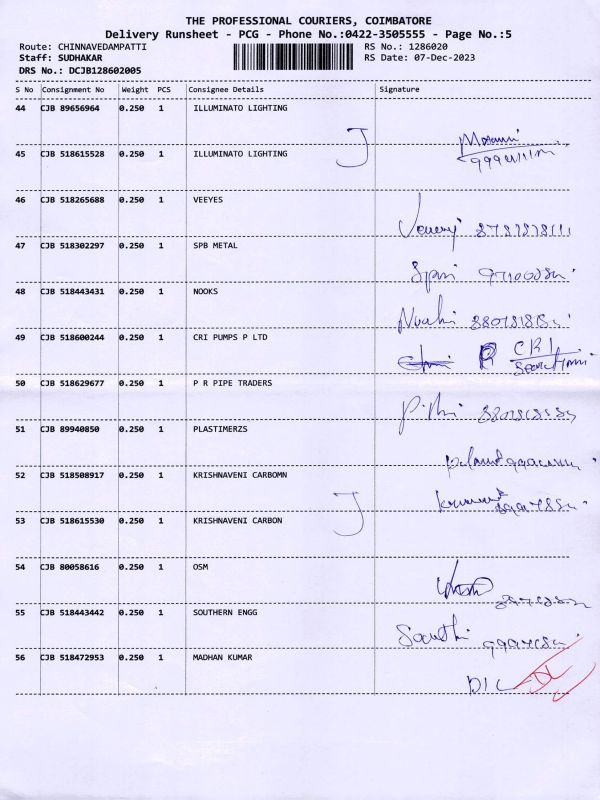 THE PROFESSIONAL COURIERS, COIMBATORE
Delivery Runsheet - PCG - Phone No.:0422-3505555 - Page No.:5
Route: CHINNAVEDAMPATTI RS No.: 1286020
Staff: SUDHAKAR RS Date: 07-Dec-2023
DRS No.: DCJB128602005
S No Consignment No Weight PCS Consignee Details Signature
44 CJB 89656964 0.250 1 ILLUMINATO LIGHTING
45 CJB 518615528 0.250 1 ILLUMINATO LIGHTING
46 CJB 518265688 0.250 1 VEEYES
47 CJB 518302297 0.250 1 SPB METAL
48 CJB 518443431 0.250 1 NOOKS
49 CJB 518600244 0.250 1 CRI PUMPS P LTD
CRI
50 CJB 518629677 0.250 1 P R PIPE TRADERS
51 CJB 89940850 0.250 1 PLASTIMERZS
52 CJB 518508917 0.250 1 KRISHNAVENI CARBOMN
53 CJB 518615530 0.250 1 KRISHNAVENI CARBON
54 CJB 80058616 0.250 1 OSM
55 CJB 518443442 0.250 1 SOUTHERN ENGG
56 CJB 518472953 0.250 1 MADHAN KUMAR